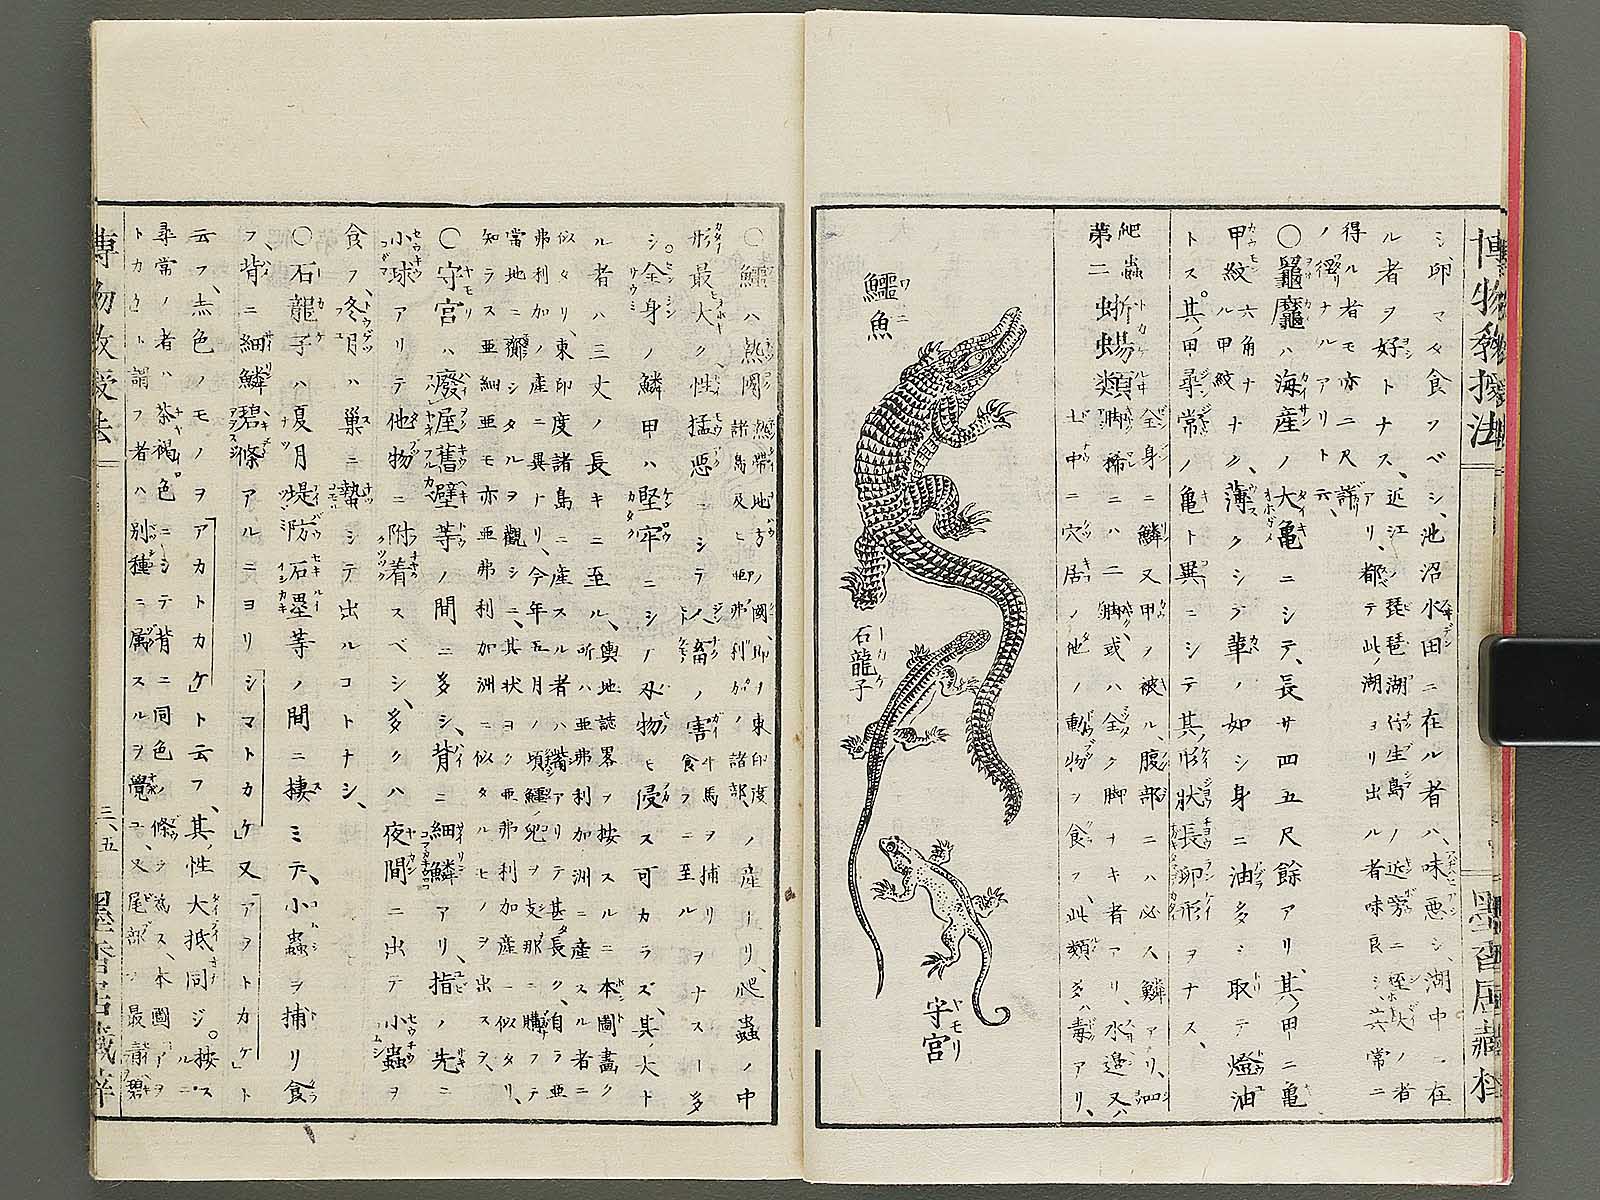 博物教授法
シ、卵マタ食フベシ、池沼水田ニ在ル者ハ、味悪シ、湖中ニ在
ル者ヲ好トナス、近江ノ琵琶湖竹生島ノ近旁ニ極大ノ者
アリ、都テ此湖ヨリ出ル者味良シ、六常ニ
得ル者モ亦ニ尺許
ノ径ナルアリト云、
〇鼈龜ハ海産ノ大亀ニシテ、長サ四五尺餘アリ、其甲ニ亀
甲紋六角ナル甲紋ナク、薄クシテ革ノ如シ身ニ油多シ取テ燈油
トス、其甲尋常ノ亀ト異ニシテ其形状長卵形ヲナス、
爬蟲
第二 蜥蜴類 全身ニ鱗又甲ノ被ル、腹部ニハ必ス鱗アリ、四
脚稀ニハ二脚或ハ全ク脚ナキ者アリ、水邊又ハ
土中ニ穴居ノ他ノ動物ヲ食フ、此類多ハ毒アリ、
鱷魚
ワニ
石龍子
トカケ
守宮
ヤモリ
〇鱷ハ熱國熱帶地方ノ國、即チ東印度諸島及ヒ亜弗利加ノ諸部ノ産ナリ、爬蟲ノ中
形最大ク、性猛悪ニシテ人畜ノ害牛馬ヲ捕リ食フニ至ルヲナスヿ多
シ、全身ノ鱗甲ハ堅牢ニシテ刄物モ侵ス可カラズ、其大ト
ル者ハ三丈ノ長キニ至ル、輿地誌畧ヲ按スルニ本圖畫ク所ハ亜弗利加洲ニ産スル者ニ
似タリ、東印度諸島ニ産スル者ハ觜アリテ甚長ク、自ラ亜
弗利加ノ産ニ異ナリ、今年五月ノ頃鱷兒ヲ支那ニ購フテ
當地ニ齎シタルヲ觀シニ、其状ヨク亜弗利加産ニ似タリ、
知ラス亜細亜モ亦亜弗利加洲ニ似タルヒノヲ出スヲ、
〇守宮ハ廢屋舊壁等ノ間ニ多シ、背ニ細鱗アリ、指ノ先ニ
小球アリテ他物ニ附着スベシ、多クハ夜間ニ出テ小蟲ヲ
食フ、冬月ハ巢ニ蟄シテ出ルコトナシ、
〇石龍子ハ夏月堤防石墨等ノ間ニ捿ミテ、小蟲ヲ捕リ食
フ、背ニ細鱗碧條アルニヨリ「シマトカケ」又「アヲトカケ」ト
云フ、赤色ノモノヲ「アカトカケ」ト云フ、其性大抵同ジ。按スルニ
尋常ノ者ハ茶褐色ニシテ背ニ同色ノ條ヲ為ス、本圖「アヲ
トカケ」ト謂フ者ハ別種ニ属スルヲ覺ユ、又尾部ノ最青碧
博物教授法
三ノ五
墨香居藏梓